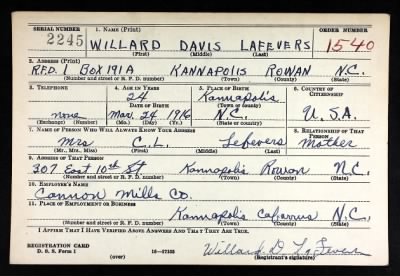 SERIAL NUMBER 1. NAME (Print) ORDER NUMBER
2245 WILLARD DAVIS LAFEVERS 1540
(First) (Middle) (Last)
2. ADDRESS (Print)
R.F.D. 1 BOX 191A KANNAPOLIS ROWAN N.C.
(Number and street or R. F. D. number) (Town) (County) (State)
3. TELEPHONE 4. AGE IN YEARS 5. PLACE OF BIRTH 6. COUNTRY OF CITIZENSHIP
24 Kannapolis
DATE OF BIRTH (Town or county)
none Mar. 24 1916 N.C. U.S.A.
(Exchange) (Number) (Mo.) (Day) (Yr.) (State or country)
7. NAME OF PERSON WHO WILL ALWAYS KNOW YOUR ADDRESS 8. RELATIONSHIP OF THAT PERSON
Mrs C.L. Lefevers Mother
(Mr., Mrs., Miss) (First) (Middle) (Last)
9. ADDRESS OF THAT PERSON
307 East 10th St Kannapolis Rowan N.C.
(Number and street or R. F. D. number) (Town) (County) (State)
10. EMPLOYER'S NAME
Cannon Mills Co.
11. PLACE OF EMPLOYMENT OR BUSINESS
Kannapolis Cabarrus N.C.
(Number and street or R. F. D. number) (Town) (County) (State)
I AFFIRM THAT I HAVE VERIFIED ABOVE ANSWERS AND THAT THEY ARE TRUE.
REGISTRATION CARD
D. S. S. Form 1 (over) 16-17105 Willard D. LaFevers
(Registrant's signature)